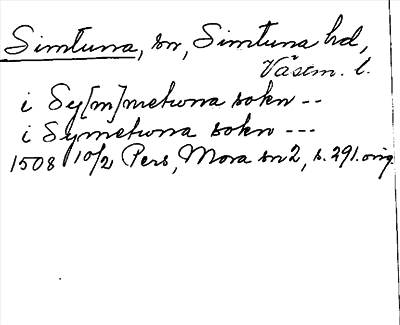 Simtuna, sn, Simtuna hd,
Västm. l.
i Sy[m]metuna sokn --
i Symetuna sokn ---
1508 10/2 Pers, Mora sn 2, s. 291. orig